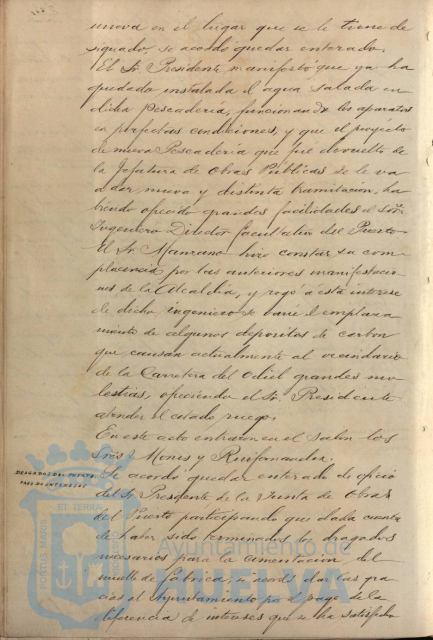 nueva en el lugar que se le tiene de
signado, se acordo quedar enterado.
El Sr. Presidente manifestó que ya ha
quedado instalada el agua salada en
dicha Pescadería, funcionando los aparatos
en perfectas condiciones, y que el proyecto
de nueva Pescadería que fue devuelto de
la Jefatura de Obras Públicas se le va
a dar nueva y distinta tramitacion, ha
biendo ofrecido grandes facilidades el Sor.
Ingeniero Director facultativo del Puerto.
El Sr. Manzano hizo constar su com
placencia por las anteriores manifestacio
nes de la Alcaldía, y rogó a esta interese
de dicho ingeniero se varíe el emplaza
miento de algunos depositos de carbon
que causan actualmente al vecindario
de la Carretera del Odiel grandes mo
lestias, ofreciendo el Sr. Presidente
atender el citado ruego.
En este acto entraron en el Salon los
Sres. Mones y Ruifernandez.
DRAGADOS DEL PUERTO
PAGO DE INTERESES
Se acordó quedar enterado de oficio
del Sr. Presidente de la Junta de Obras
del Puerto participando que dada cuenta
de haber sido terminados los dragados
necesarios para la cimentacion del
muelle de fábrica, se acordó dar las gra
cias al Ayuntamiento por el pago de la
diferencia de intereses que se ha satisfecho
PORTUS MARIS
ET TERRAE
Ayuntamiento de
HUELVA